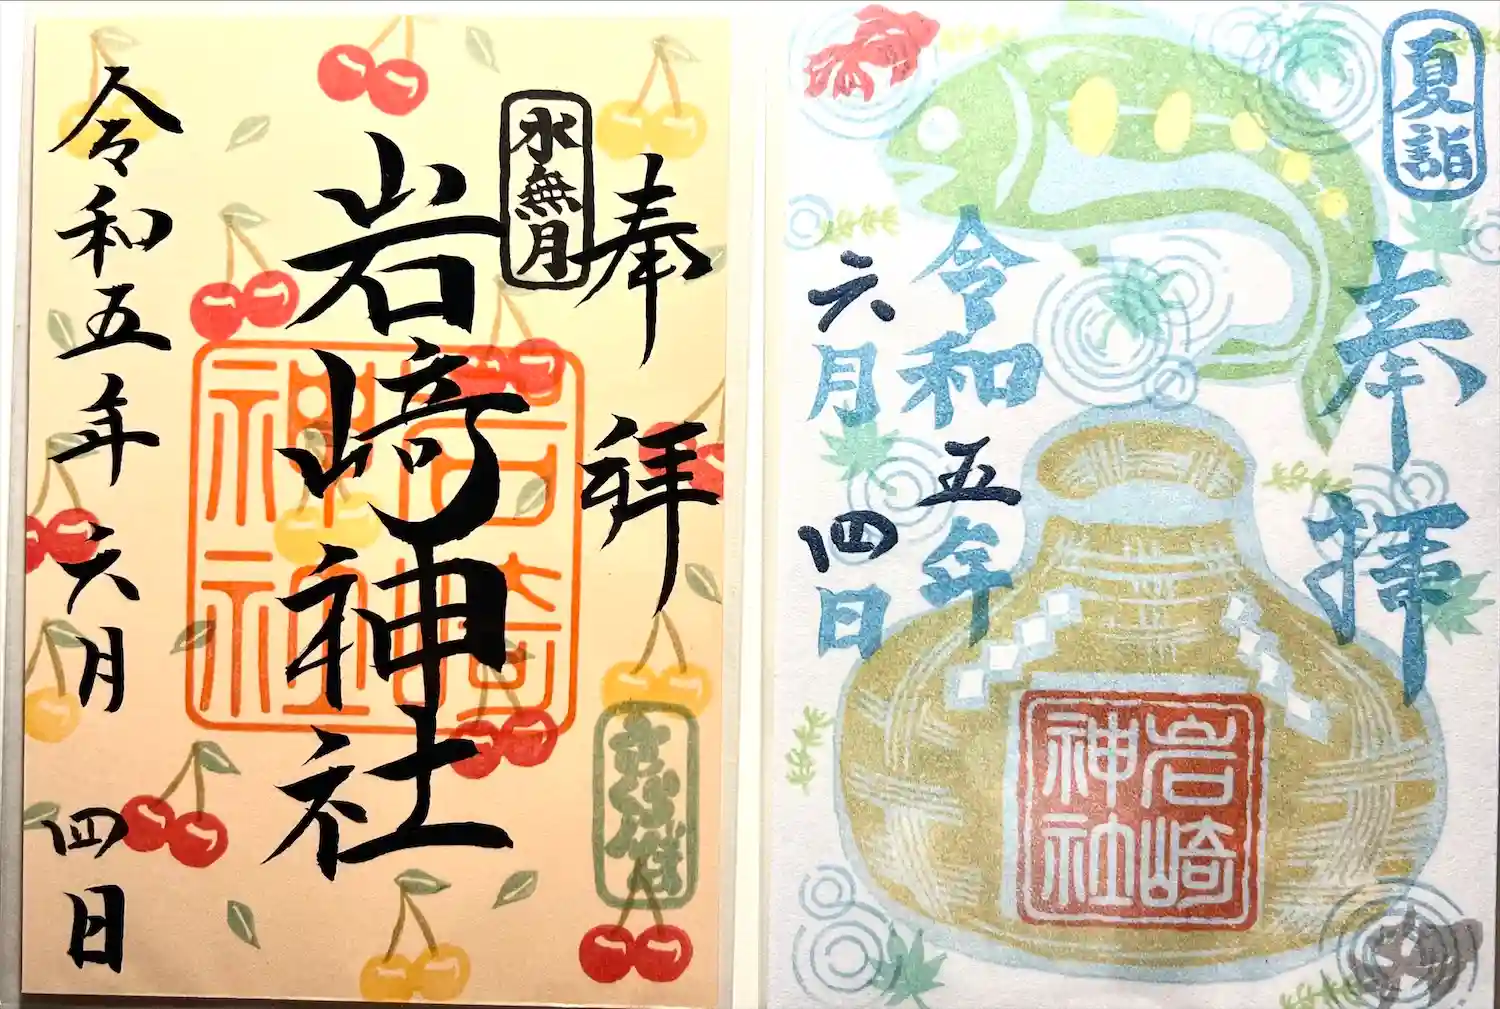 奉拝
水無月
岩崎神社
岩崎神社
令和五年六月四日
夏詣
奉拝
令和五年
六月四日
岩崎神社